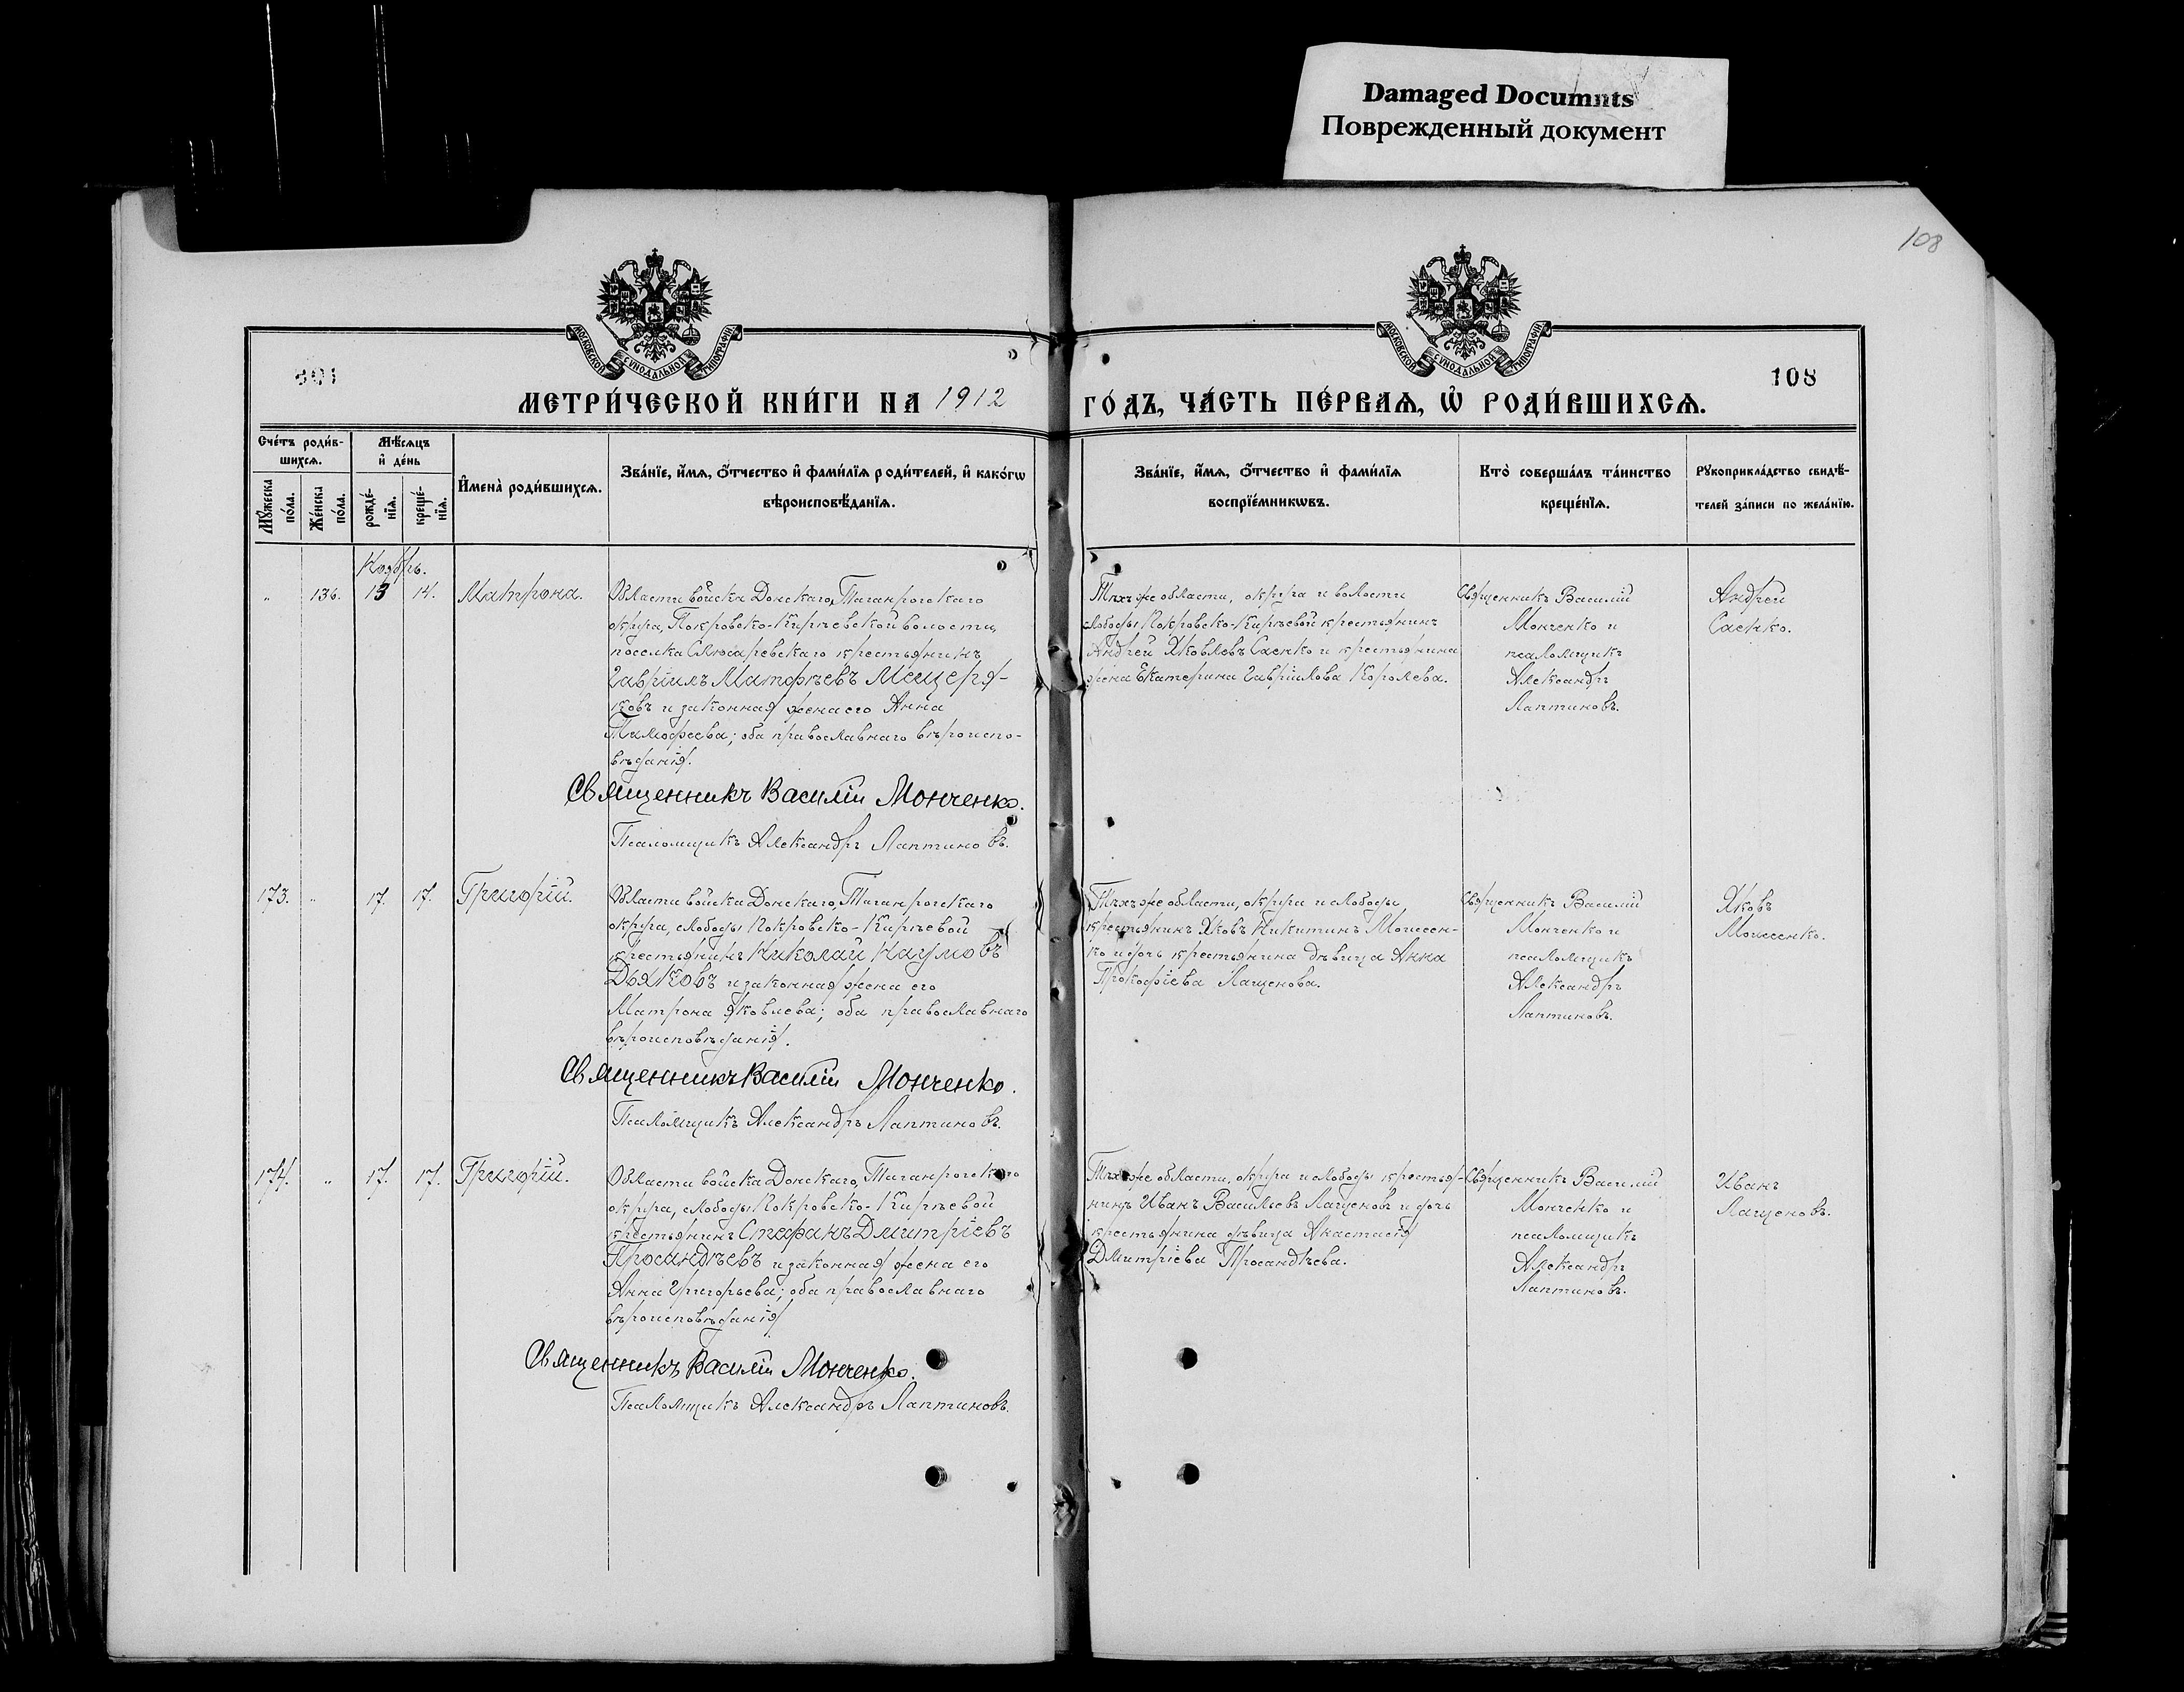 Damaged Documnts
Поврежденный документ
108
МОСКОВСКОЙ СѴНОДАЛЬНОЙ ТИПОГРАФІИ
МОСКОВСКОЙ СѴНОДАЛЬНОЙ ТИПОГРАФІИ
108
МЕТРИ́ЧЕСКОЙ КНИ́ГИ НА 1912
ГО́ДЪ, ЧА́СТЬ ПЕ́РВАѦ, Ѡ РОДИ́ВШИХСѦ.
Сче́тъ роди́в-
шихсѧ.
Мѣ́сѧцъ
и де́нь
Му́жеска
по́ла.
Же́нска
по́ла.
рожде́-
нїѧ.
креще́-
нїѧ.
Имена̀ роди́вшихсѧ.
Зва́нїе, и́мѧ, о́тчество и фами́лїѧ роди́телей, и како́гѡ
вѣроисповѣ́данїѧ.
Зва́нїе, и́мѧ, о́тчество и фами́лїѧ
воспрїе́мникѡвъ.
Кто̀ соверша́лъ та́инство
креще́нїѧ.
Рукоприкла́дство свидѣ́-
телей за́писи по жела́нїю.
Ноябрь.
" 136. 13 14. Матрона.
Области войска Донскаго, Таганрогскаго
округа, Покровско-Кирѣевской волости,
поселка Слюсаревскаго крестьянинъ
Гавріилъ Матѳѣевъ Мещеря-
ковъ и законная жена его Анна
Тимофеева; оба православнаго вѣроиспо-
вѣданія.
Священникъ Василій Монченко.
Псаломщикъ Александръ Лаптиновъ.
Тѣхъ же области, округа и волости
слободы Покровско-Кирѣевой крестьянинъ
Андрей Яковлевъ Саенко и крестьянина
жена Екатерина Гавріилова Королева.
Священникъ Василій
Монченко и
псаломщикъ
Александръ
Лаптиновъ.
Андрей
Саенко.
173. " 17. 17. Григорій.
Области войска Донскаго, Таганрогскаго
округа, слободы Покровско-Кирѣевой
крестьянинъ Николай Наумовъ
Дьяковъ и законная жена его
Матрона Яковлева; оба православнаго
вѣроисповѣданія.
Священникъ Василій Монченко.
Псаломщикъ Александръ Лаптиновъ.
Тѣхъ же области, округа и слободы
крестьянинъ Яковъ Никитинъ Моисеен-
ко и дочь крестьянина дѣвица Анна
Прокофіева Лащенова.
Священникъ Василій
Монченко и
псаломщикъ
Александръ
Лаптиновъ.
Яковъ
Моисеенко.
174. " 17. 17. Григорій.
Области войска Донскаго, Таганрогскаго
округа, слободы Покровско-Кирѣевой
крестьянинъ Стефанъ Дмитріевъ
Просандѣевъ и законная жена его
Анна Григорьева; оба православнаго
вѣроисповѣданія
Священникъ Василій Монченко.
Псаломщикъ Александръ Лаптиновъ.
Тѣхъ же области, округа и слободы крестья-
нинъ Иванъ Васильевъ Лащеновъ и дочь
крестьянина дѣвица Анастасія
Дмитріева Просандѣева.
Священникъ Василій
Монченко и
псаломщикъ
Александръ
Лаптиновъ.
Иванъ
Лащеновъ.